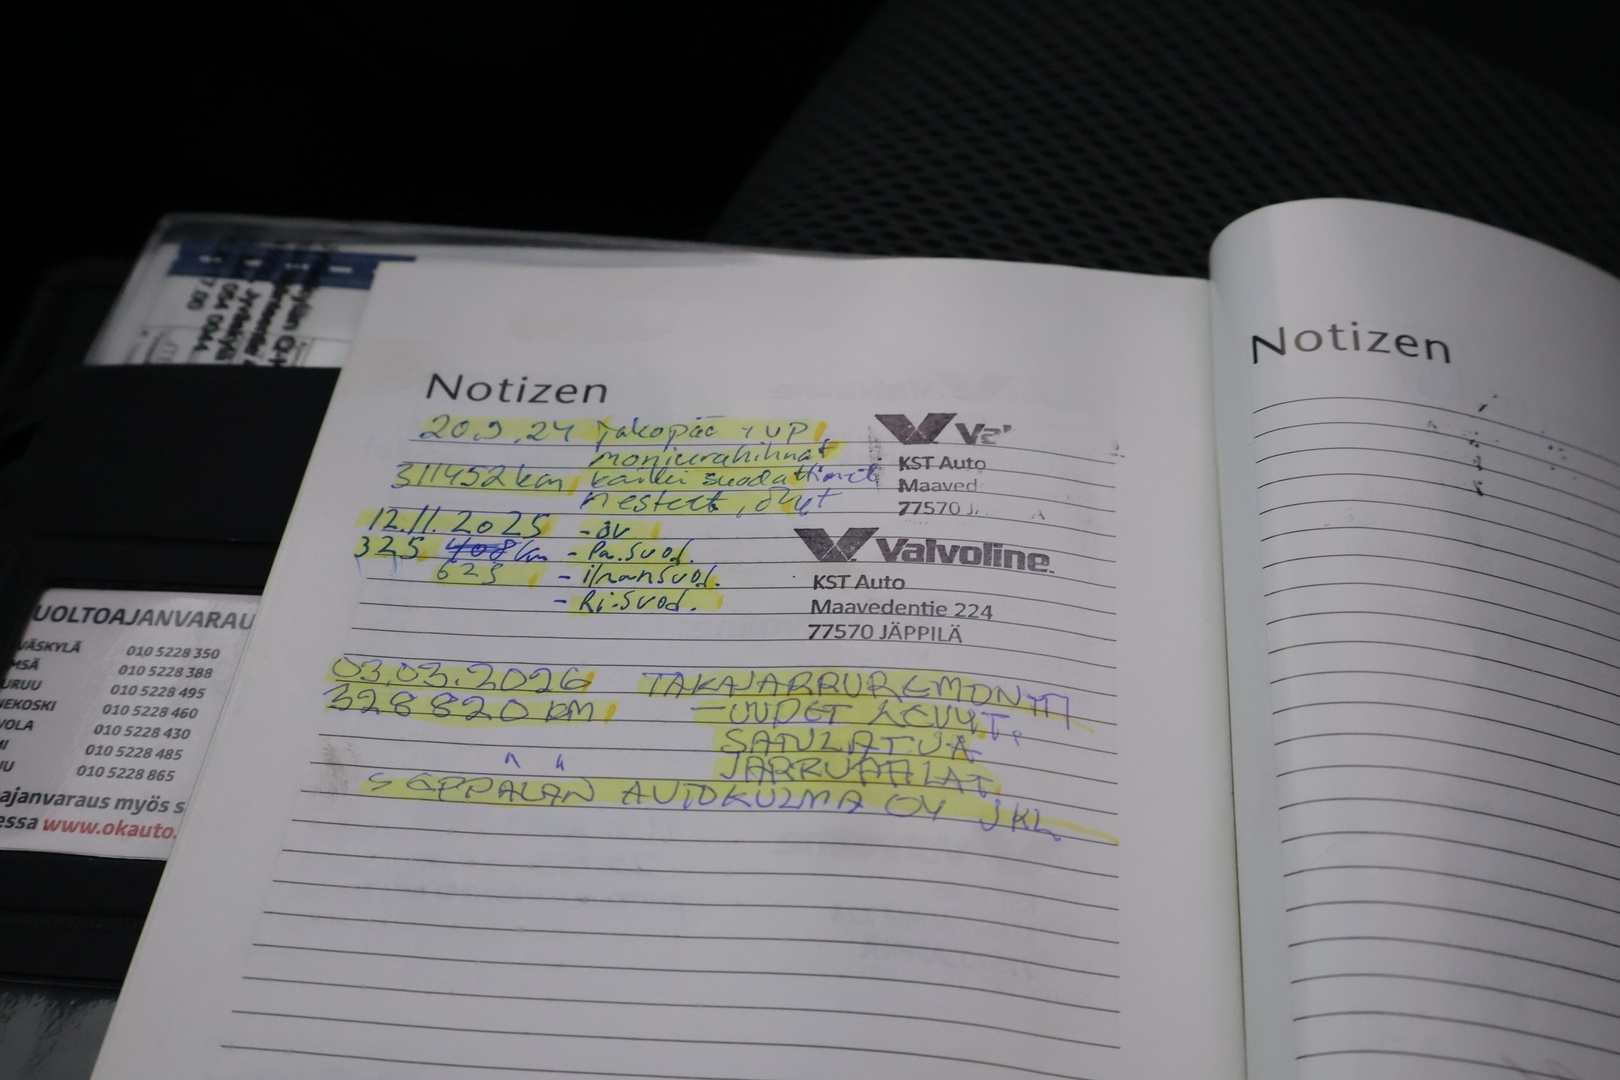 Notizen
20.9.24 jakopää + VP
moniurahihnat
311452 km kaikki suodattimet
nesteet, öljyt
12.11.2025 - öv
325 408 km - Pa.suod.
625 - ilmansuod.
- Ri.suod.
03.03.2026 TAKAJARRUREMONTTI
328820 KM - UUDET LEVYT,
SATULAT JA
JARRUPALAT
SEPPÄLÄN AUTOKULMA OY JKL
KST Auto
Maaved
77570 J
Valvoline
KST Auto
Maavedentie 224
77570 JÄPPILÄ
Notizen
UOLTOAJANVARAU
VÄSKYLÄ 010 5228 350
MSÄ 010 5228 388
URUU 010 5228 495
NEKOSKI 010 5228 460
VOLA 010 5228 430
MI 010 5228 485
UU 010 5228 865
ajanvaraus myös s
essa www.okauto.